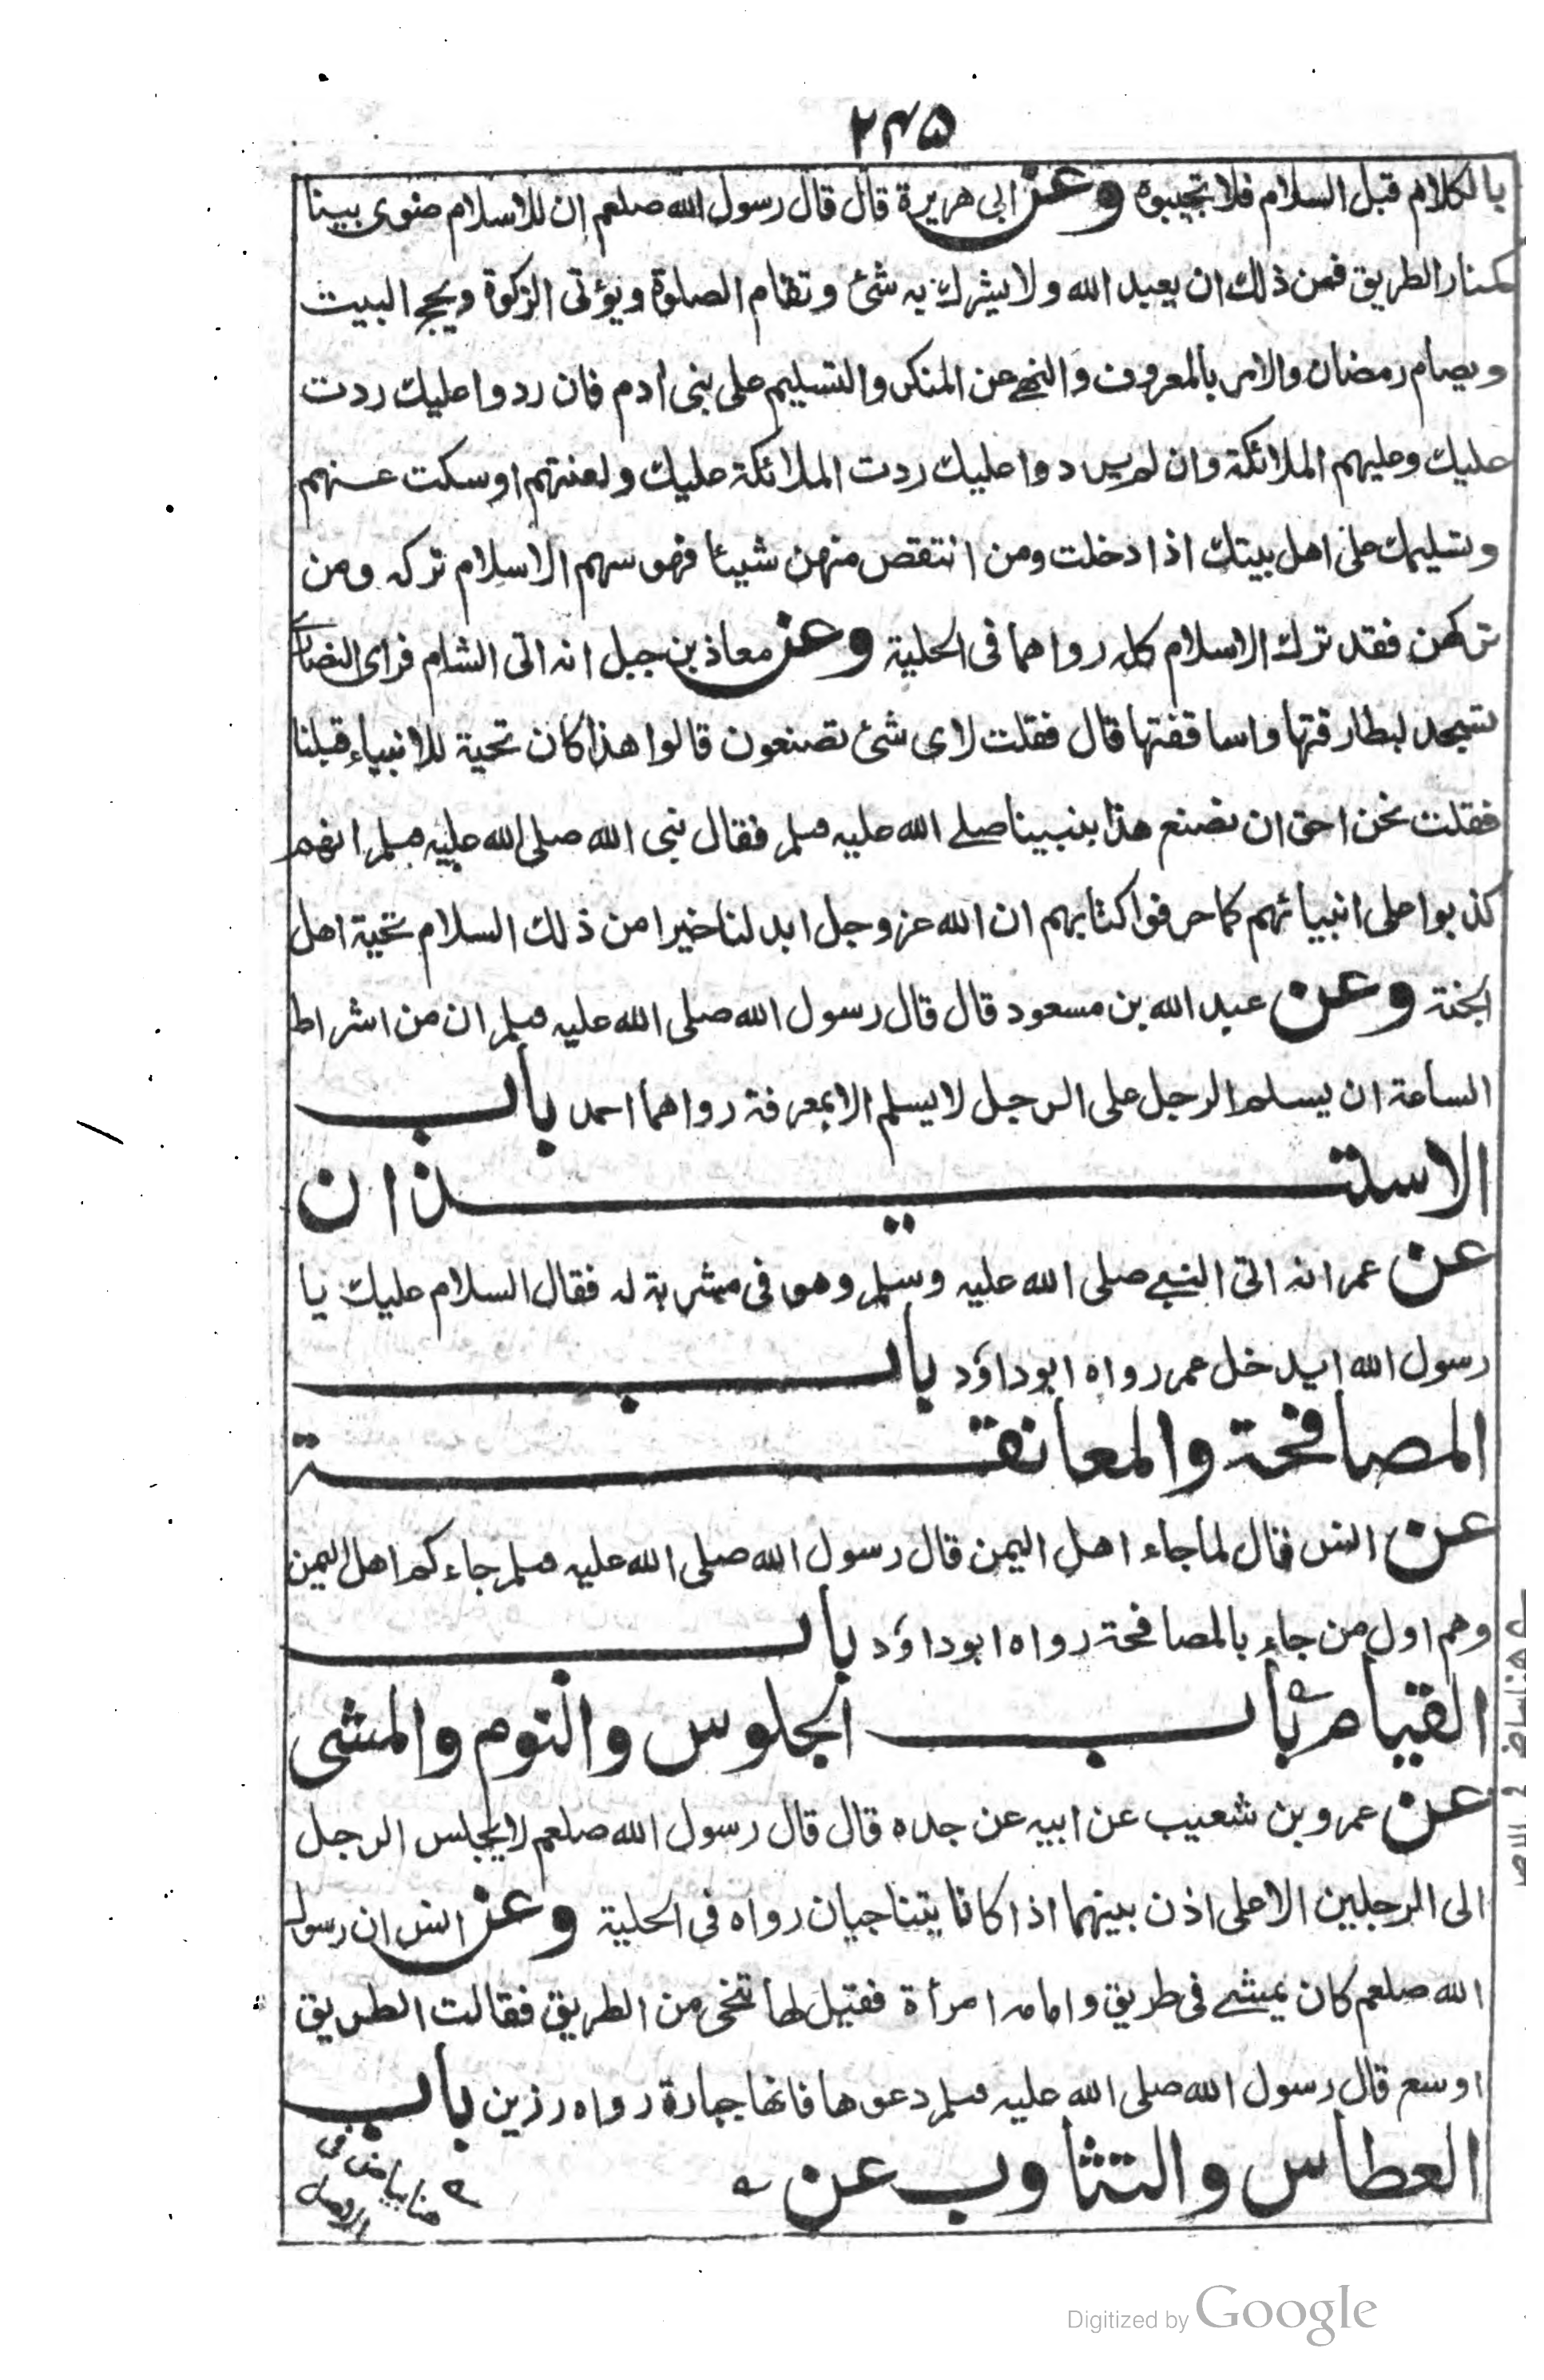 ٢٣٥
بالكلام قبل السلام فلا تجيبوه وعن ابی هريرة قال قال رسول الله صلعم ان للاسلام ضوی بينا
كمنار الطريق فمن ذلك ان يعبد الله ولا يشرك به شئ وتقام الصلوة ويؤتی الزكوة ويحج البيت
ويصام رمضان والامر بالمعروف والنهے عن المنكر والتسليم علی بنی ادم فان ردوا عليك ردت
عليك وعليهم الملائكة وان لم يردوا عليك ردت الملائكة عليك ولعنتهم او سكت عنهم
وتسليمك علی اهل بيتك اذا دخلت ومن انتقص منهن شيئا فهو سهم الاسلام تركه ومن
تركهن فقد ترك الاسلام كله رواهما فی الحلية وعن معاذ بن جبل انه اتی الشام فرای النصاری
تسجد لبطارقتها واساقفتها قال فقلت لای شئ تصنعون قالوا هذا كان تحية للانبياء قبلنا
فقلت نحن احق ان نصنع هذا بنبينا صلے الله عليه وسلم فقال نبی الله صلی الله عليه وسلم انهم
كذبوا علی انبيائهم كما حرفوا كتابهم ان الله عز وجل ابدلنا خيرا من ذلك السلام تحية اهل
الجنة وعن عبد الله بن مسعود قال قال رسول الله صلی الله عليه وسلم ان من اشراط
الساعة ان يسلم الرجل علی الرجل لا يسلم الا بمعرفة رواهما احمد باب
الاستيذان
عن عمر انه اتی النبے صلی الله عليه وسلم وهو فی مشربة له فقال السلام عليك يا
رسول الله ايدخل عمر رواه ابو داؤد باب
المصافحة والمعانقة
عن انس قال لما جاء اهل اليمن قال رسول الله صلی الله عليه وسلم جاءكم اهل اليمن
وهم اول من جاء بالمصافحة رواه ابو داؤد باب
القيام باب الجلوس والنوم والمشی
عن عمرو بن شعيب عن ابيه عن جده قال قال رسول الله صلعم لا يجلس الرجل
الی الرجلين الا علی اذن بينهما اذا كانا يتناجيان رواه فی الحلية وعن انس ان رسول
الله صلعم كان يمشے فی طريق وامامه امرأة فقيل لها تنحی من الطريق فقالت الطريق
اوسع قال رسول الله صلی الله عليه وسلم دعوها فانها جبارة رواه رزين باب
العطاس والتثاوب عن
هنا بياض فی
الاصل
Digitized by Google